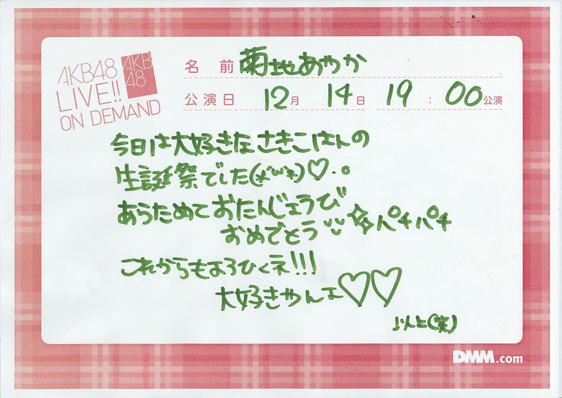 AKB48
LIVE!!
ON DEMAND
AKB
48
名前 菊地あやか
公演日 12月 14日 19:00公演
今日は大好きなさきこはんの
生誕祭でした(*ˆˆ*)♡..
あらためておたんじょうび
おめでとう パチパチ
これからもよろひくネ!!!
大好きやんよ♡♡
(笑)
DMM.com